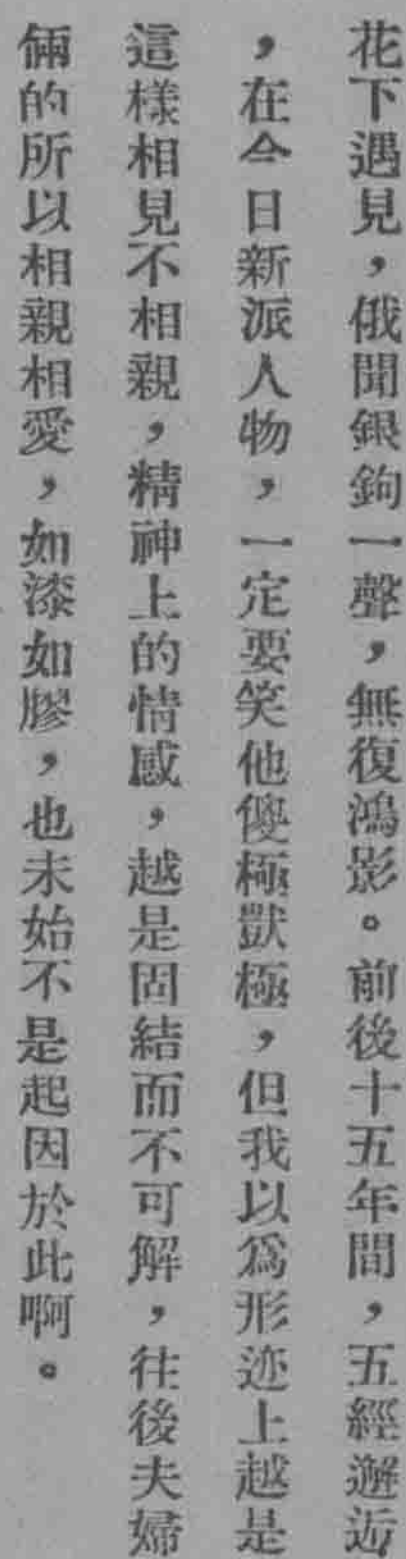 花下遇見，俄聞銀鉤一聲，無復鴻影。前後十五年間，五經邂逅
，在今日新派人物，一定要笑他傻極獃極，但我以爲形迹上越是
這樣相見不相親，精神上的情感，越是固結而不可解，往後夫婦
倆的所以相親相愛，如漆如膠，也未始不是起因於此啊。